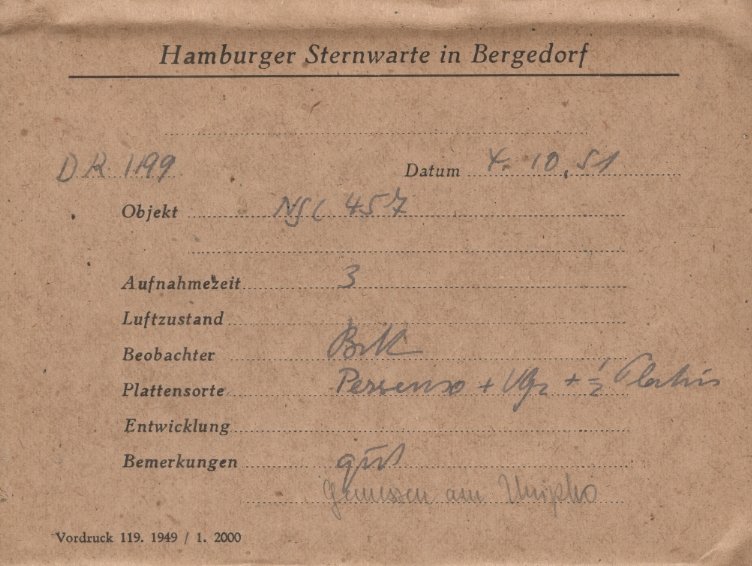 Hamburger Sternwarte in Bergedorf
DR 1199 Datum 4. 10. 51
Objekt NGC 457
Aufnahmezeit 3
Luftzustand
Beobachter
Plattensorte Persenso + + ½ Platin
Entwicklung
Bemerkungen gut
Gemessen am Unipho
Vordruck 119. 1949 / 1. 2000